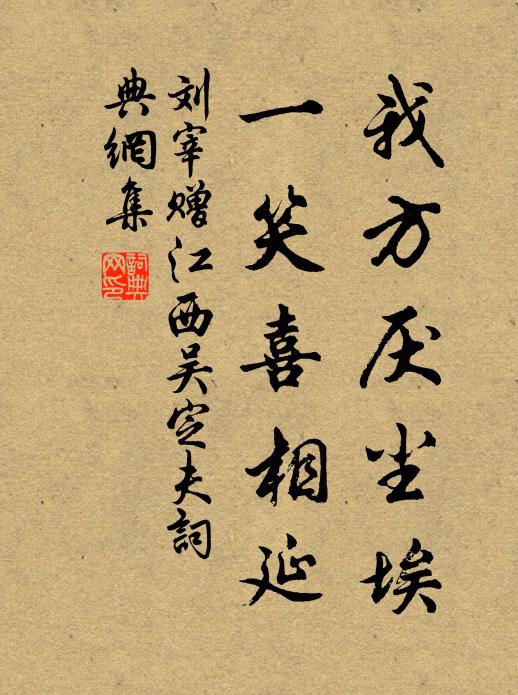 我方厌尘埃
一笑喜相延
刘宰赠江西吴定夫詞
典網集
詞典网印